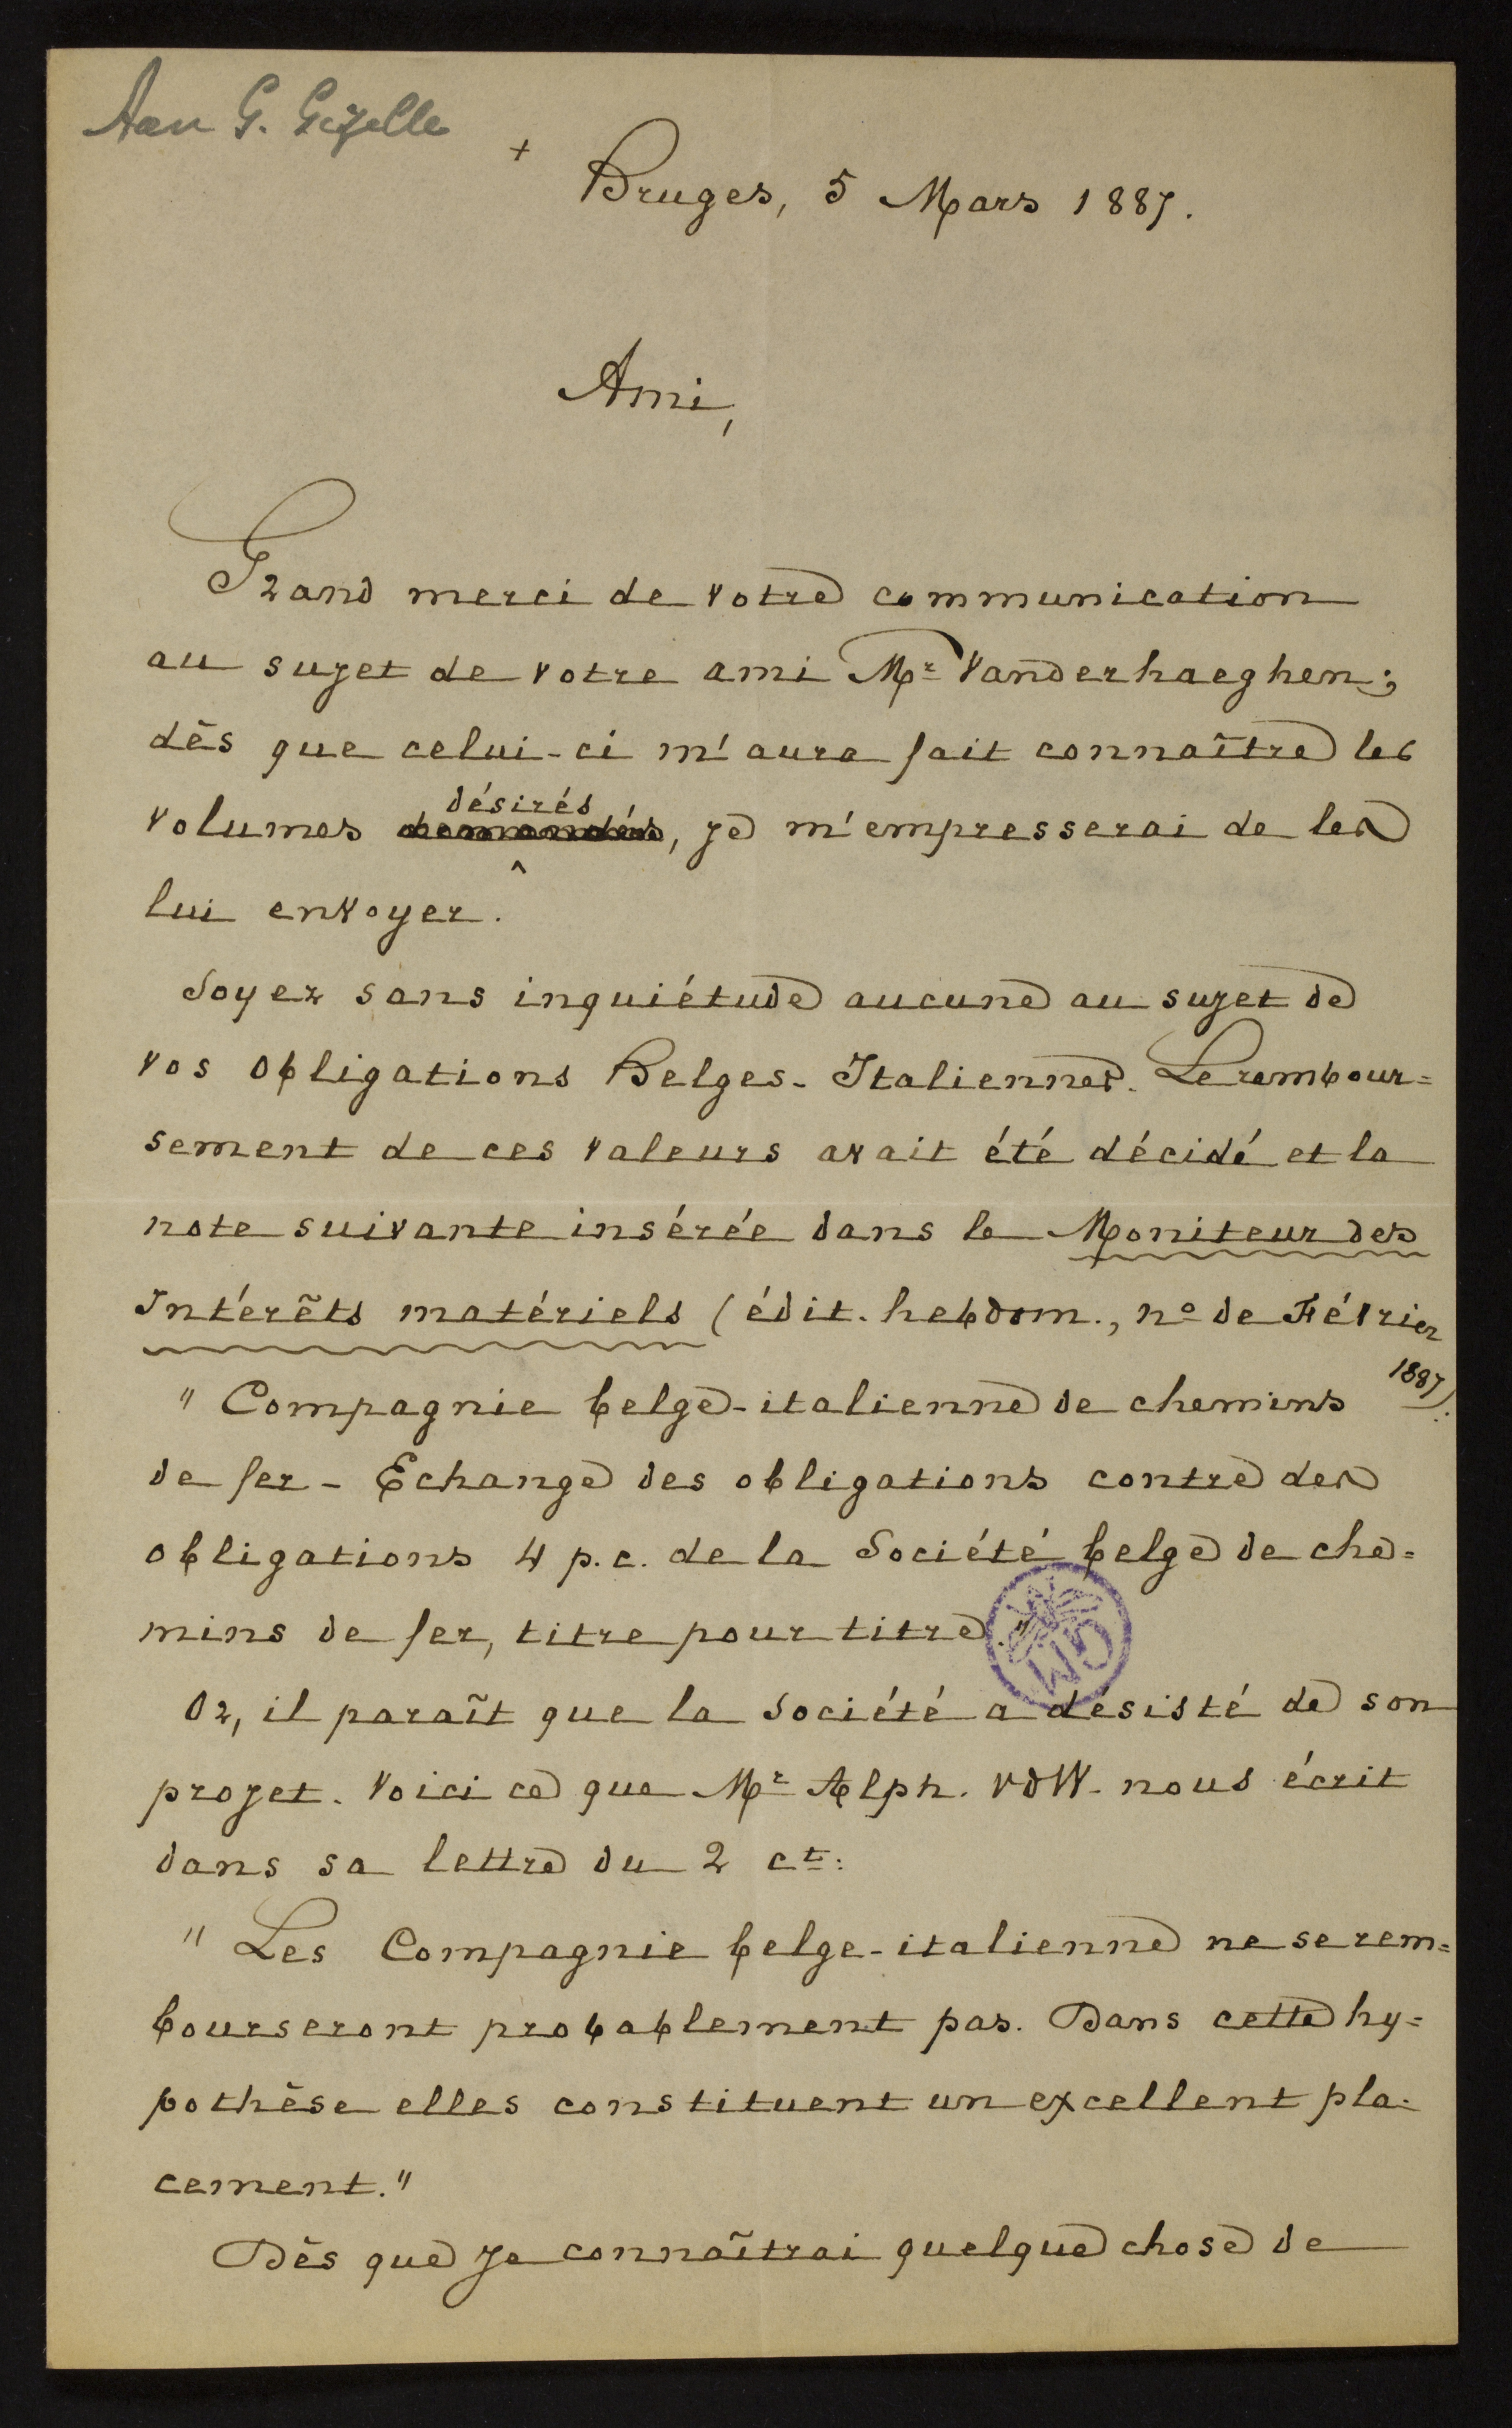 Aan G. Gezelle
+
Bruges, 5 Mars 1887.
Ami,
Grand merci de votre communication
au sujet de votre ami Mr Vanderhaeghen;
dès que celui-ci m'aura fait connaître les
volumes demandés désirés, je m'empresserai de les
lui envoyer.
Soyez sans inquiétude aucune au sujet de
vos obligations Belges-Italiennes. Le rembour=
sement de ces valeurs avait été décidé et la
note suivante insérée dans le Moniteur des
Intérêts matériels (édit. hebdom., no de Février
1887):
"Compagnie belge-italienne de chemins
de fer - Echange des obligations contre des
obligations 4 p.c. de la Société belge de che=
mins de fer, titre pour titre."
Or, il paraît que la Société a desisté de son
projet. Voici ce que Mr Alph. VdW. nous écrit
dans sa lettre du 2 ct:
"Les Compagnie belge-italienne ne se rem=
bourseront probablement pas. Dans cette hy=
pothèse elles constituent un excellent pla-
cement."
Dès que je connaîtrai quelque chose de